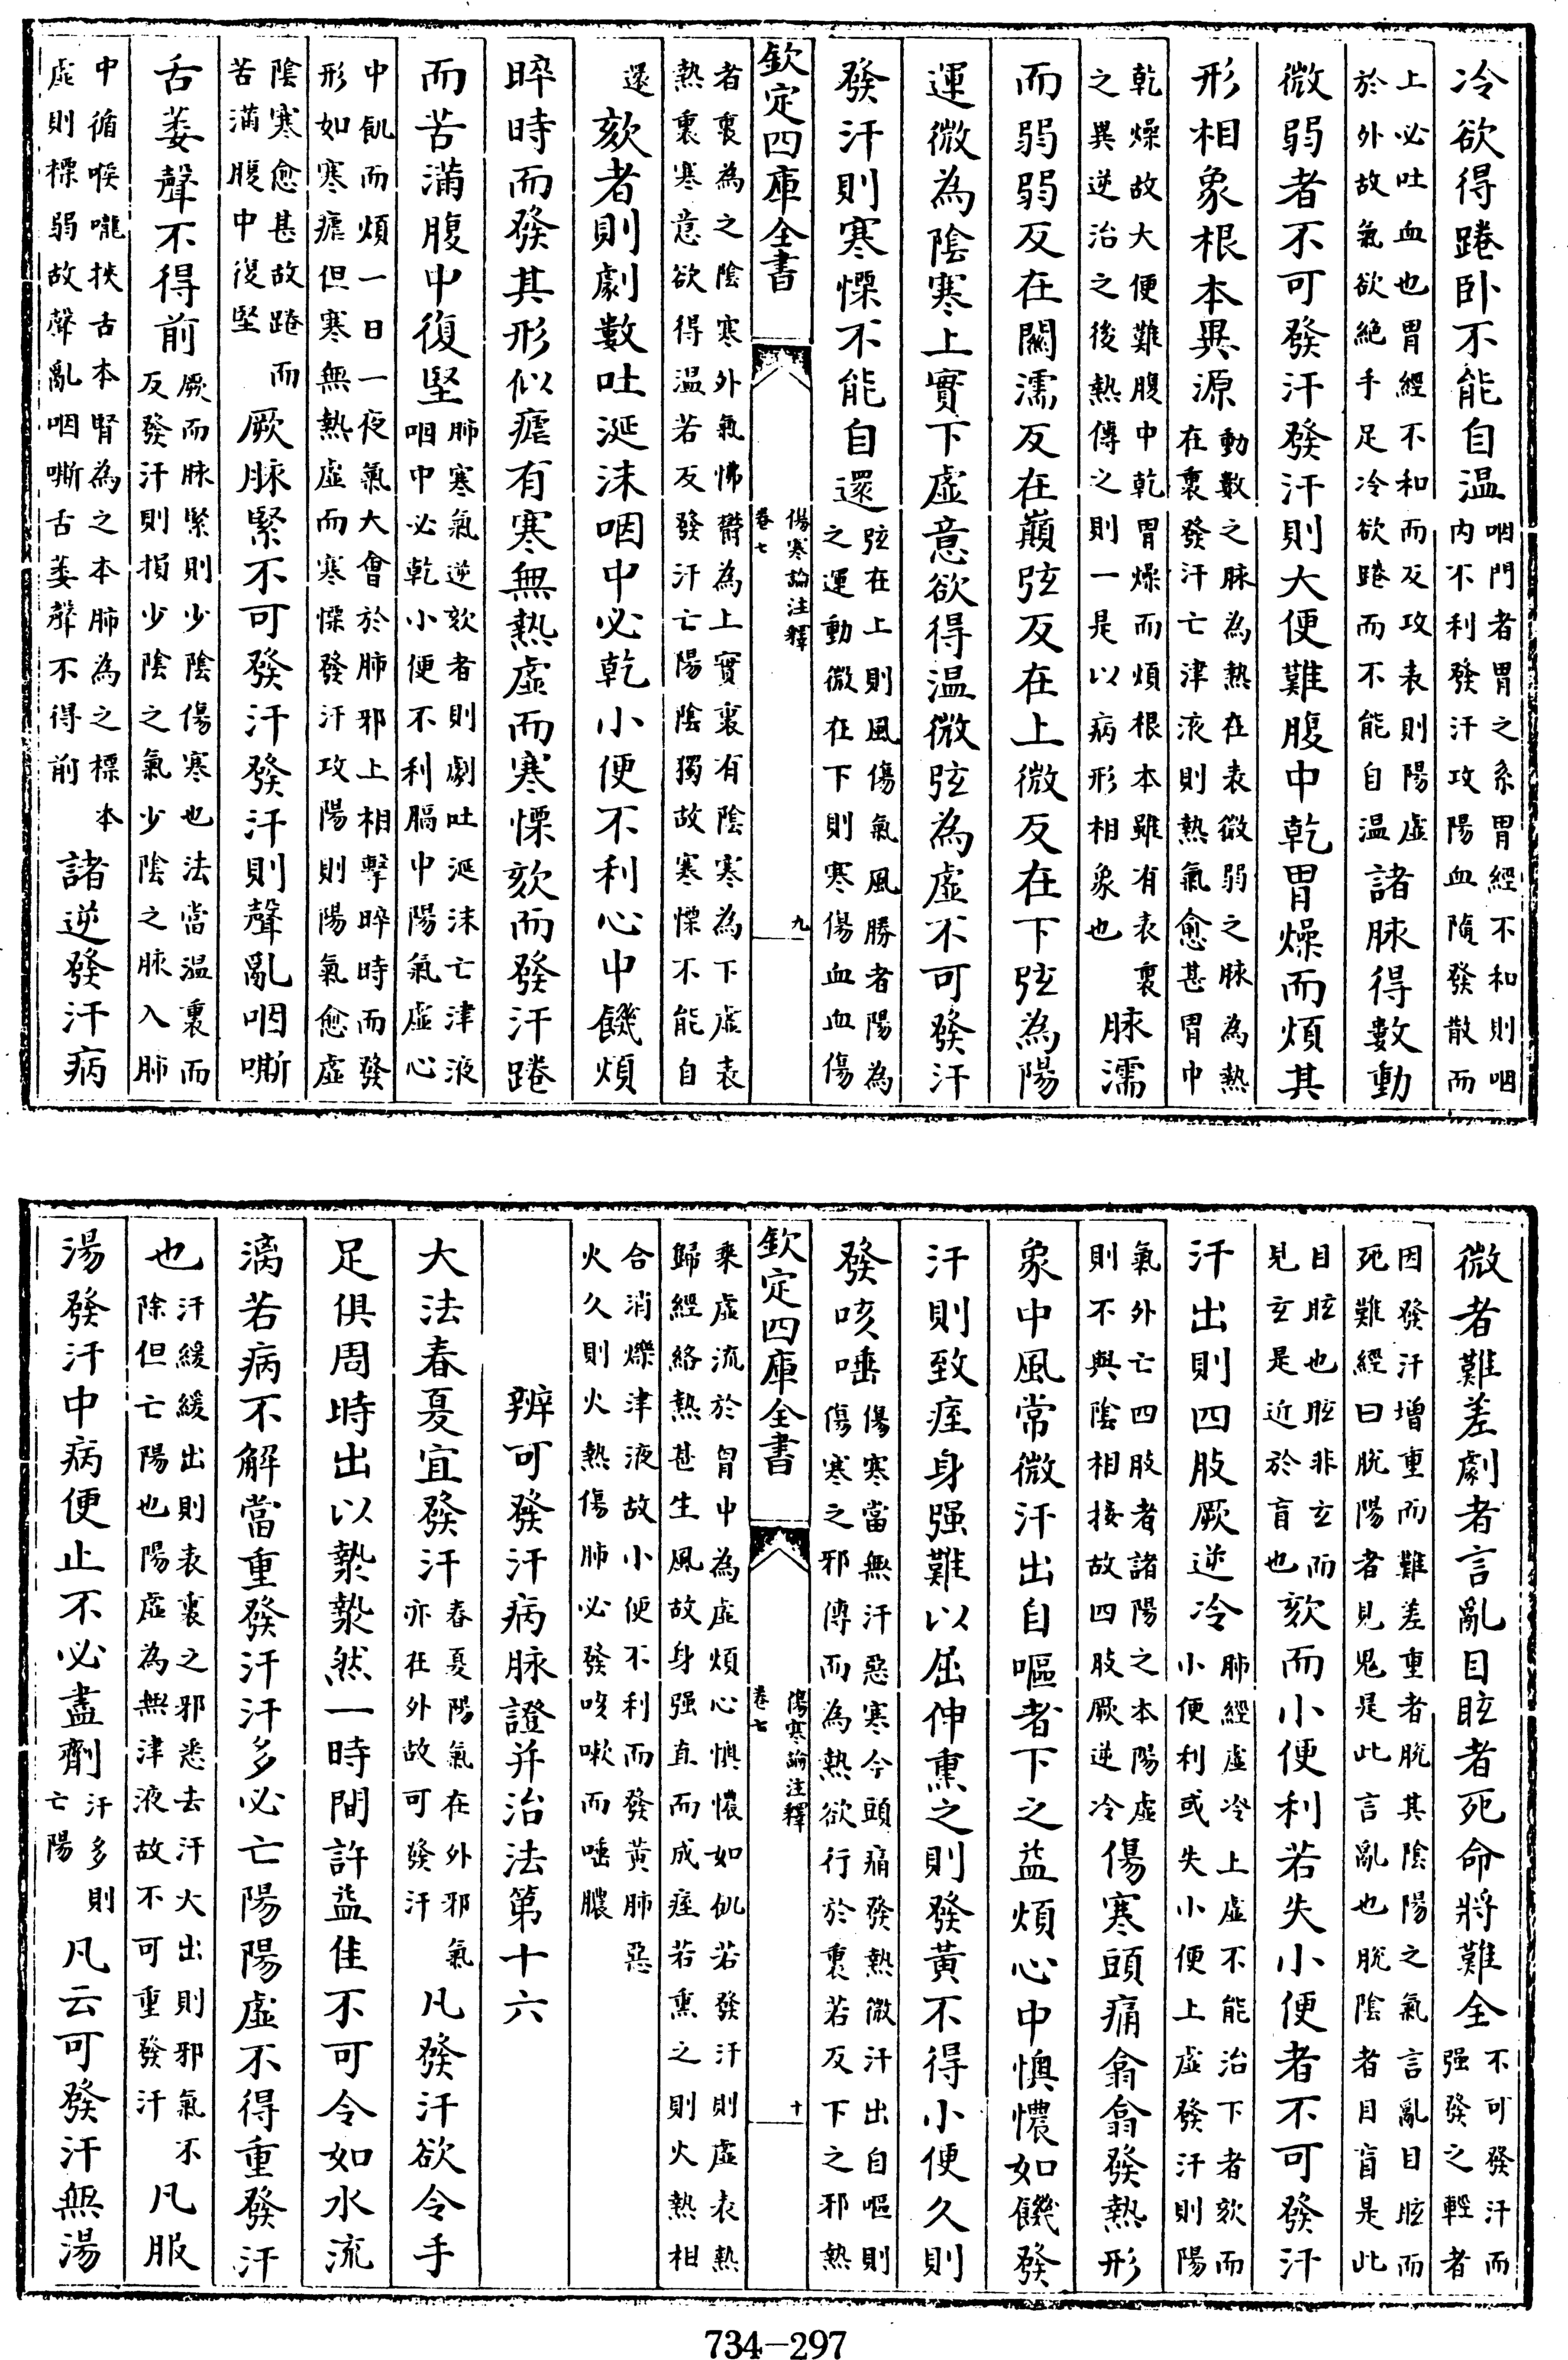 冷欲得踡卧不能自温咽門者胃之系胃經不和則咽内不利發汗攻陽血隨發散而
上必吐血也胃經不和而反攻表則陽虛於外故氣欲絶手足冷欲踡而不能自温諸脉得數動
微弱者不可發汗發汗則大便難腹中乾胃燥而煩其
形相象根本異源動數之脉為熱在表微弱之脉為熱在裏發汗亡津液則熱氣愈甚胃中
乾燥故大便難腹中乾胃燥而煩根本雖有表裏之異逆治之後熱傳之則一是以病形相象也脉濡
而弱弱反在關濡反在巔弦反在上微反在下弦為陽
運微為陰寒上實下虛意欲得温微弦為虛不可發汗
發汗則寒慄不能自還弦在上則風傷氣風勝者陽為之運動微在下則寒傷血血傷
欽定四庫全書 傷寒論注釋 卷七 九
者裏為之陰寒外氣怫鬱為上實裏有陰寒為下虛表熱裏寒意欲得温若反發汗亡陽陰獨故寒慄不能自
還欬者則劇數吐涎沫咽中必乾小便不利心中饑煩
晬時而發其形似瘧有寒無熱虛而寒慄欬而發汗踡
而苦滿腹中復堅肺寒氣逆欬者則劇吐涎沫亡津液咽中必乾小便不利膈中陽氣虛心
中飢而煩一日一夜氣大會於肺邪上相擊晬時而發形如寒瘧但寒無熱虛而寒慄發汗攻陽則陽氣愈虛
陰寒愈甚故踡而苦滿腹中復堅厥脉緊不可發汗發汗則聲亂咽嘶
舌萎聲不得前厥而脉緊則少陰傷寒也法當温裏而反發汗則損少陰之氣少陰之脉入肺
中循喉嚨挾舌本腎為之本肺為之標本虛則標弱故聲亂咽嘶舌萎聲不得前諸逆發汗病
微者難差劇者言亂目眩者死命將難全不可發汗而强發之輕者
因發汗增重而難差重者脱其陰陽之氣言亂目眩而死難經曰脱陽者見鬼是此言亂也脱陰者目盲是此
目眩也眩非玄而見玄是近於盲也欬而小便利若失小便者不可發汗
汗出則四肢厥逆冷肺經虛冷上虛不能治下者欬而小便利或失小便上虛發汗則陽
氣外亡四肢者諸陽之本陽虛則不與陰相接故四肢厥逆冷傷寒頭痛翕翕發熱形
象中風常微汗出自嘔者下之益煩心中懊憹如饑發
汗則致痓身强難以屈伸熏之則發黄不得小便久則
發咳唾傷寒當無汗惡寒今頭痛發熱微汗出自嘔則傷寒之邪傳而為熱欲行於裏若反下之邪熱
欽定四庫全書 傷寒論注釋 卷七 十
乘虛流於胃中為虛煩心懊憹如飢若發汗則虛表熱歸經絡熱甚生風故身强直而成痓若熏之則火熱相
合消爍津液故小便不利而發黄肺惡火久則火熱傷肺必發咳嗽而唾膿
辨可發汗病脉證并治法第十六
大法春夏宜發汗春夏陽氣在外邪氣亦在外故可發汗凡發汗欲令手
足俱周時出以漐漐然一時間許益佳不可令如水流
漓若病不解當重發汗汗多必亡陽陽虛不得重發汗
也汗緩緩出則表裏之邪悉去汗大出則邪氣不除但亡陽也陽虛為無津液故不可重發汗凡服
湯發汗中病便止不必盡劑汗多則亡陽凡云可發汗無湯
734-297